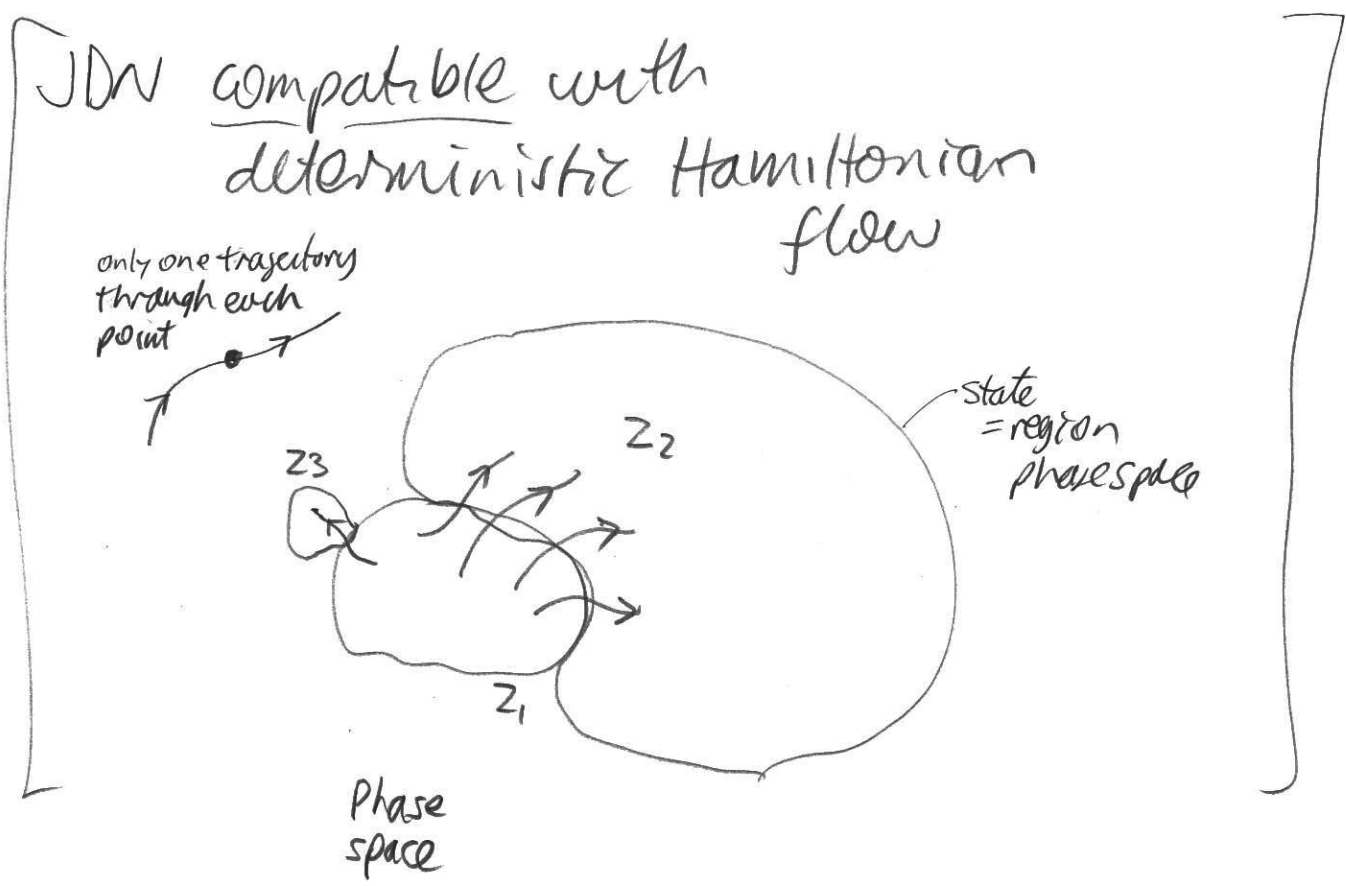 JDN compatible with
deterministic Hamiltonian
flow
only one trajectory
through each
point
state
= region
phase space
Z2
Z3
Z1
Phase
space